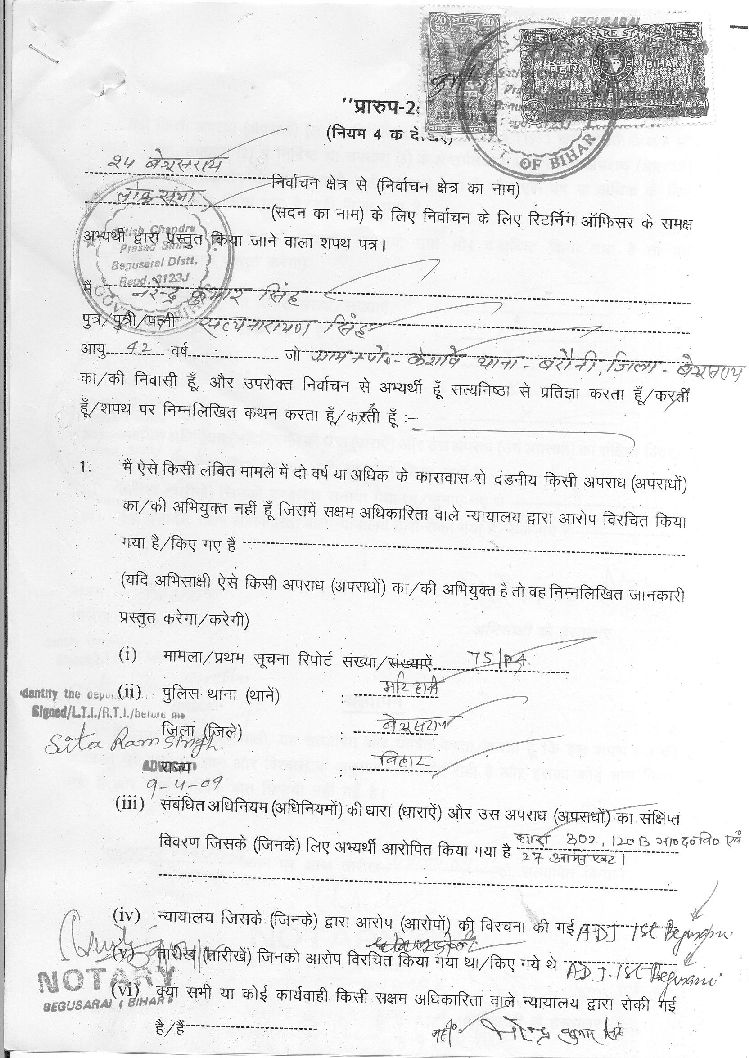 BEGUSARAI
"प्रारुप-2
(नियम 4 क
GOVT. OF BIHAR
24 बेगुसराय
निर्वाचन क्षेत्र से (निर्वाचन क्षेत्र का नाम)
लोक सभा
(सदन का नाम) के लिए निर्वाचन के लिए रिटर्निंग ऑफिसर के समक्ष
अभ्यर्थी द्वारा प्रस्तुत किया जाने वाला शपथ पत्र।
Satish Chandra
Prasad
Begusarai Distt.
Regd. 3123J
मैं नरेन्द्र कुमार सिंह
पुत्र/पुत्री/पत्नी सत्यनारायण सिंह
आयु 42 वर्ष जो ग्राम+पो०- केशावे थाना - बरौनी, जिला - बेगुसराय
का/की निवासी हूँ, और उपरोक्त निर्वाचन से अभ्यर्थी हूँ सत्यनिष्ठा से प्रतिज्ञा करता हूँ/करती
हूँ/शपथ पर निम्नलिखित कथन करता हूँ/करती हूँ :-
1. मैं ऐसे किसी लंबित मामले में दो वर्ष या अधिक के कारावास से दंडनीय किसी अपराध (अपराधों)
का/की अभियुक्त नहीं हूँ जिसमें सक्षम अधिकारिता वाले न्यायालय द्वारा आरोप विरचित किया
गया है/किए गए हैं
(यदि अभिसाक्षी ऐसे किसी अपराध (अपराधों) का/की अभियुक्त है तो वह निम्नलिखित जानकारी
प्रस्तुत करेगा/करेगी)
(i) मामला/प्रथम सूचना रिपोर्ट संख्या/संख्याऐं 75/94
Identity the
(ii) पुलिस थाना (थानें) : मटिहानी
Signed/L.T.I./R.T.I./before me
जिला (जिले) : बेगुसराय
Sita Ram Singh
राज्य : बिहार
ADVOCATE
9-4-09
(iii) संबंधित अधिनियम (अधिनियमों) की धारा (धाराऐं) और उस अपराध (अपराधों) का संक्षिप्त
विवरण जिसके (जिनके) लिए अभ्यर्थी आरोपित किया गया है धारा 302, 120B भा०द०वि० एवं
27 आर्म्स एक्ट।
(iv) न्यायालय जिसके (जिनके) द्वारा आरोप (आरोपों) की विरचना की गई ADJ Ist Begusarai
(v) तारीख (तारीखें) जिनको आरोप विरचित किया गया था/किए गये थे ADJ. Ist Begusarai
NOTARY
BEGUSARAI (BIHAR)
(vi) क्या सभी या कोई कार्यवाही किसी सक्षम अधिकारिता वाले न्यायालय द्वारा रोकी गई
है/हैं नहीं० नरेन्द्र कुमार सिंह